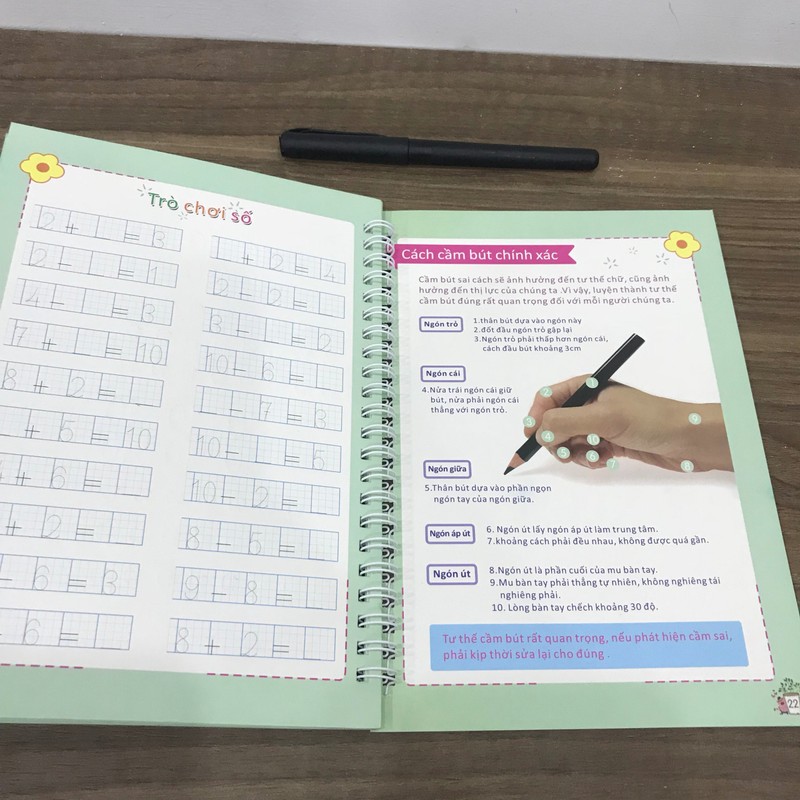 Trò chơi số
2 + = 3
2 - = 1
4 - = 3
7 + = 10
8 + 2 =
+ 5 = 10
+ 6 =
- 2 =
- 6 = 3
6 =
+ 2 = 4
2 - 2 =
3 + =
10 - 6 =
- 7 = 3
10 - = 5
10 - 2 =
8 - 5 =
9 - 8 =
8 + 2 =
Cách cầm bút chính xác
Cầm bút sai cách sẽ ảnh hưởng đến tư thế chữ, cũng ảnh
hưởng đến thị lực của chúng ta .Vì vậy, luyện thành tư thế
cầm bút đúng rất quan trọng đối với mỗi người chúng ta.
Ngón trỏ
1.thân bút dựa vào ngón này
2.đốt đầu ngón trỏ gập lại
3.Ngón trỏ phải thấp hơn ngón cái,
cách đầu bút khoảng 3cm
Ngón cái
4.Nửa trái ngón cái giữ
bút, nửa phải ngón cái
thẳng với ngón trỏ.
1
2
3
4
5
6
7
8
9
10
Ngón giữa
5.Thân bút dựa vào phần ngọn
ngón tay của ngón giữa.
Ngón áp út
6. Ngón út lấy ngón áp út làm trung tâm.
7.khoảng cách phải đều nhau, không được quá gần.
Ngón út
8.Ngón út là phần cuối của mu bàn tay.
9.Mu bàn tay phải thẳng tự nhiên, không nghiêng tái
nghiêng phải.
10. Lòng bàn tay chếch khoảng 30 độ.
Tư thế cầm bút rất quan trọng, nếu phát hiện cầm sai,
phải kịp thời sửa lại cho đúng .
22